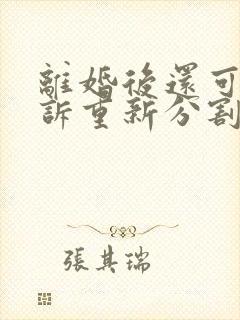 離婚後還可
訴重新分割
張其瑞